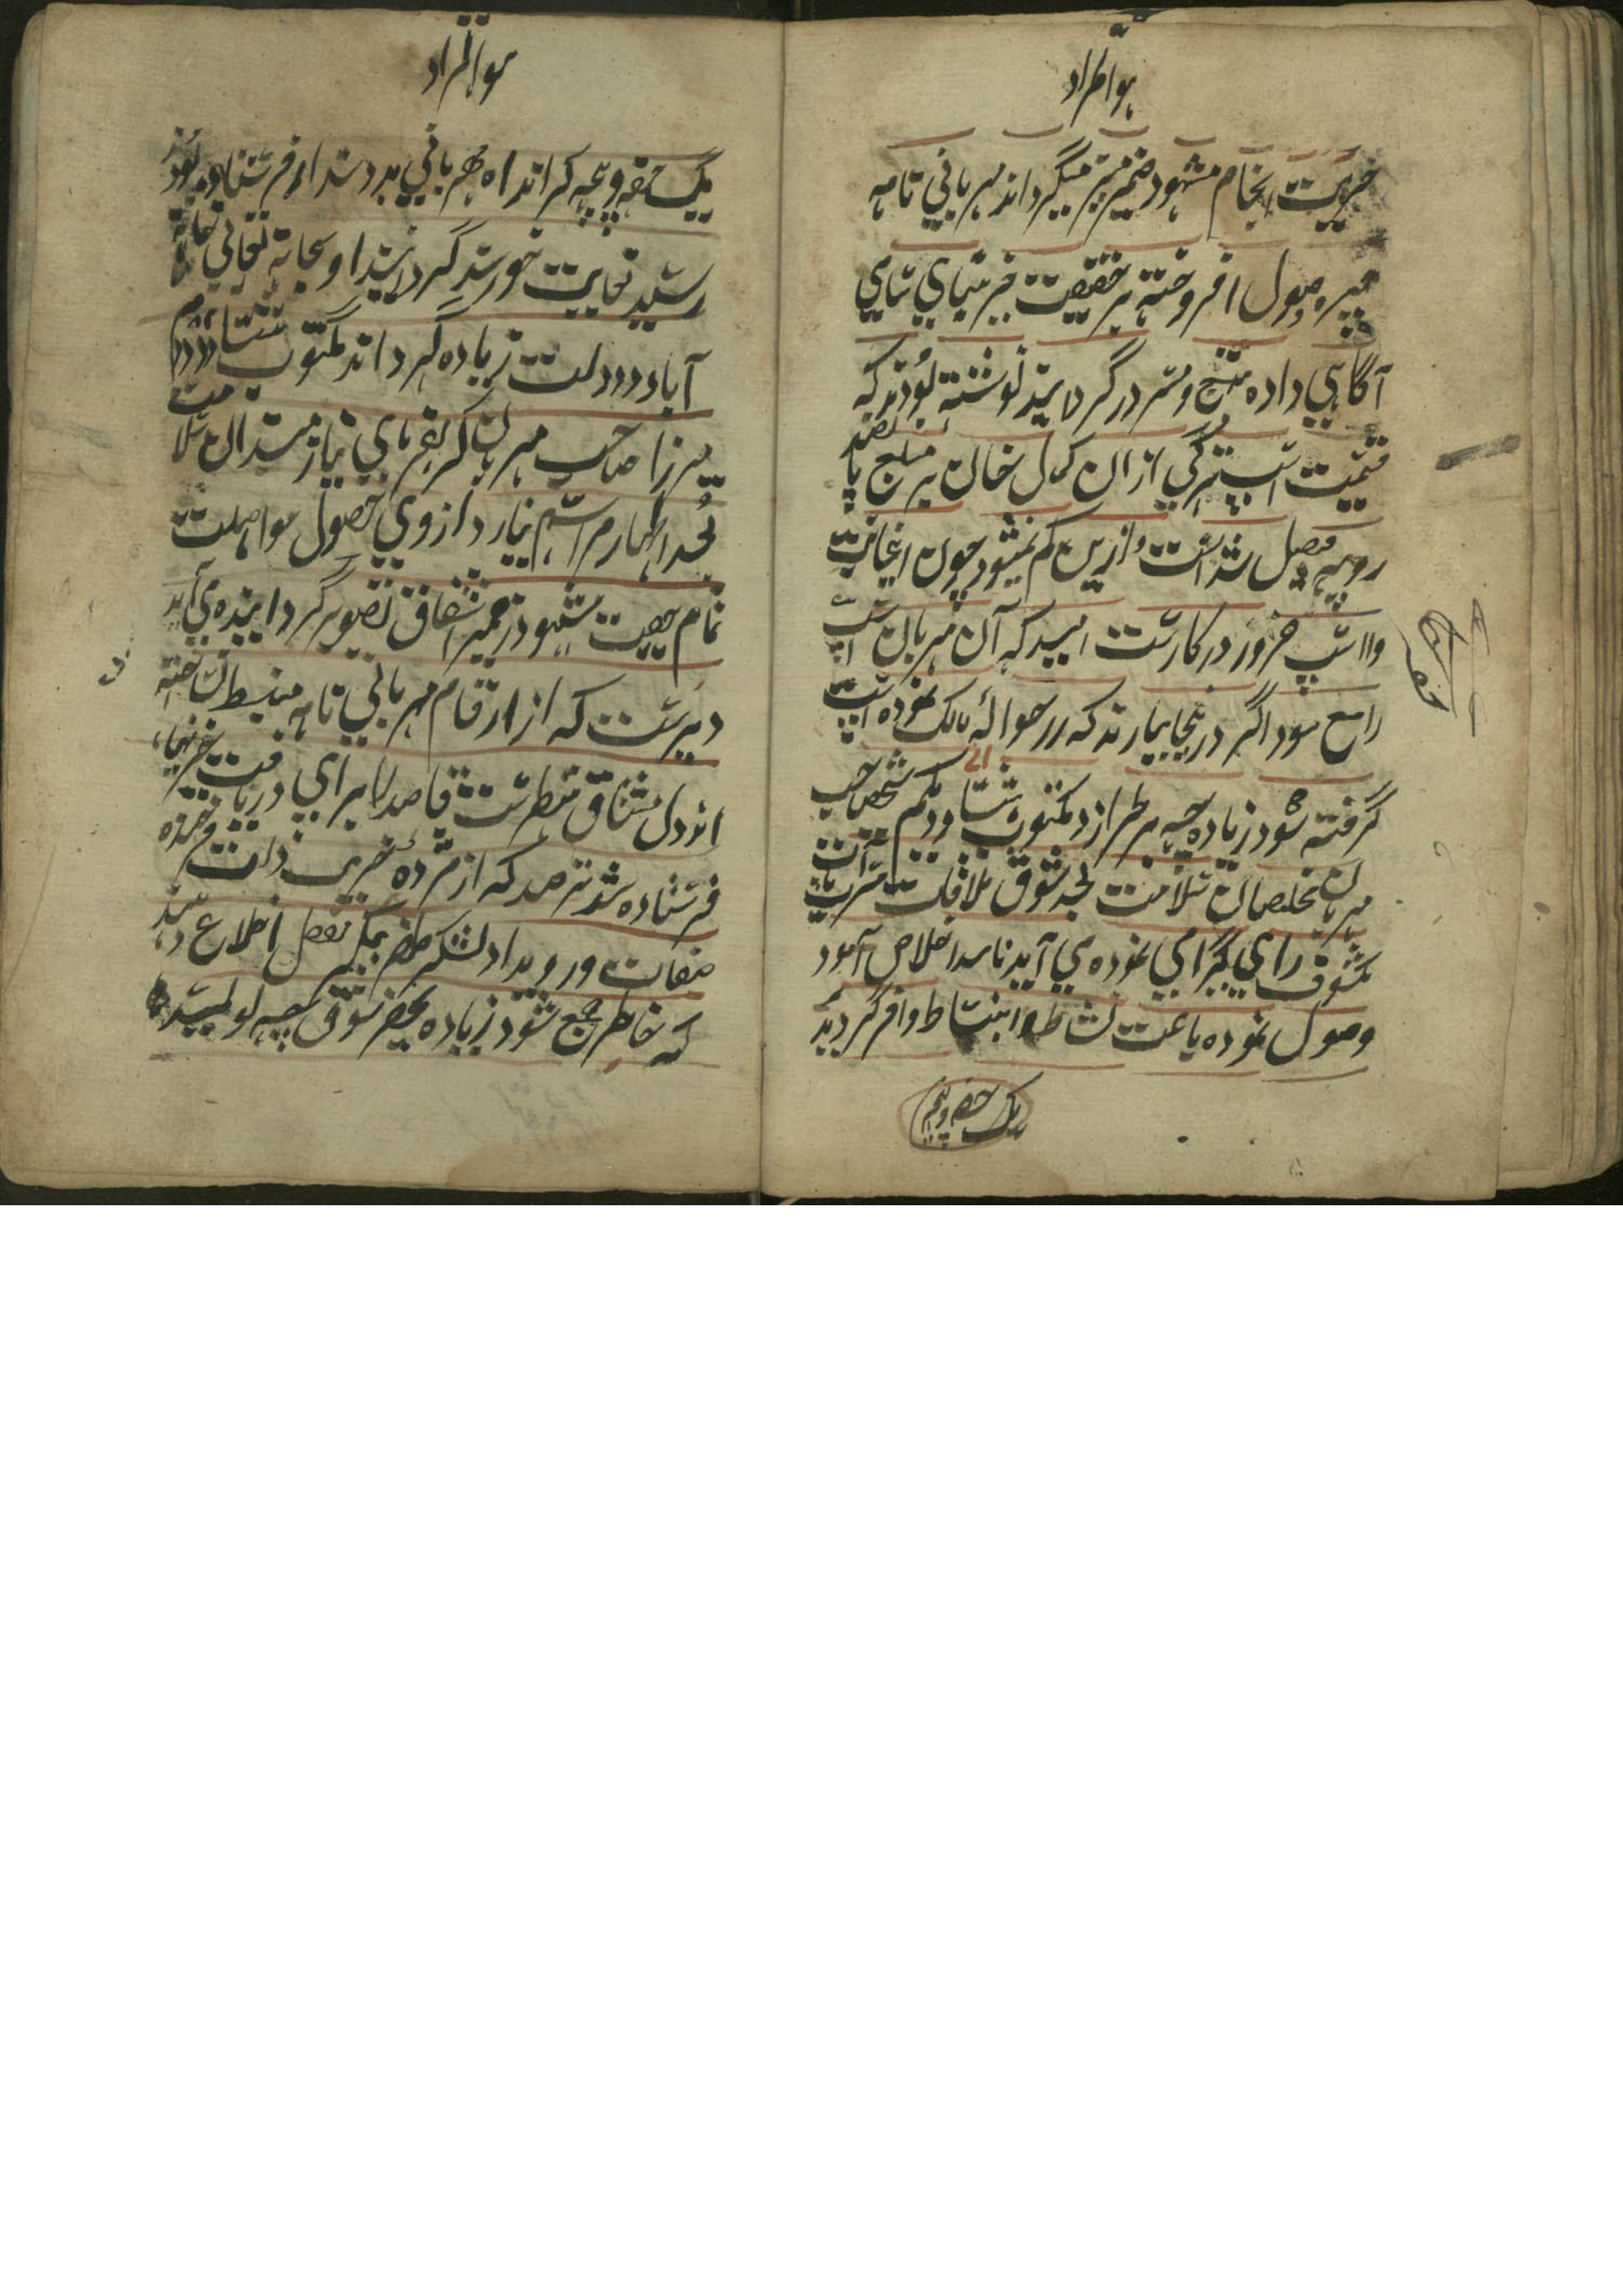 هوالمراد
خیریت انجام مشهود ضمیر منیر میگرداند مهربانی نامه
چهره وصول افروخته بر حقیقت خیر
آگاهی داده مبتهج و مسرور گردانید نوشته بودند که
قیمت اسپ ترکی ازان کمل خان بر مبلغ پانصد
روپیه فیصل شده است و ازین کم نمیشود چون اینجانب
را اسپ ضرور در کارست امید که آن مهربان اسپ
اگر در اینجا بیارند که زر حواله مالک نموده اسپ
گرفته شود زیاده چه بر طرازد مکتوب هشتاد و یکم صاحب
مهربان مخلصان سلامت بعد شوق ملاقات
مکشوف رای گرامی نموده می آید نامه اخلاص آمود
وصول نموده باعث نشاط و انبساط وافر گردید
یک حقه و نیچه
هوالمراد
یک حقه و نیچه که از راه مهربانی بدوستدار فرستاده بودند
رسید نهایت خورسند گردانید او سبحانه تعالی خانه
آباد و دولت زیاده گرداند مکتوب هشتاد و دوم
میرزا صاحب مهربان کرم فرمای نیازمندان سلامت
بعد اظهار مراسم نیاز و آرزوی حصول مواصلت
تمام بهجت مشهود ضمیر اشفاق تصویر گردانیده می آید
دیریست که از ارقام مهربانی نامه منبسط نساخته
اند دل مشتاق منتظرست قاصد را برای دریافت خبرها
فرستاده شد مترصد که از مژده خیریت ذات خجسته
صفات و رویداد لشکر ظفر پیکر مفصل اطلاع دهند
که خاطر جمع شود زیاده بجز شوق چه نویسد